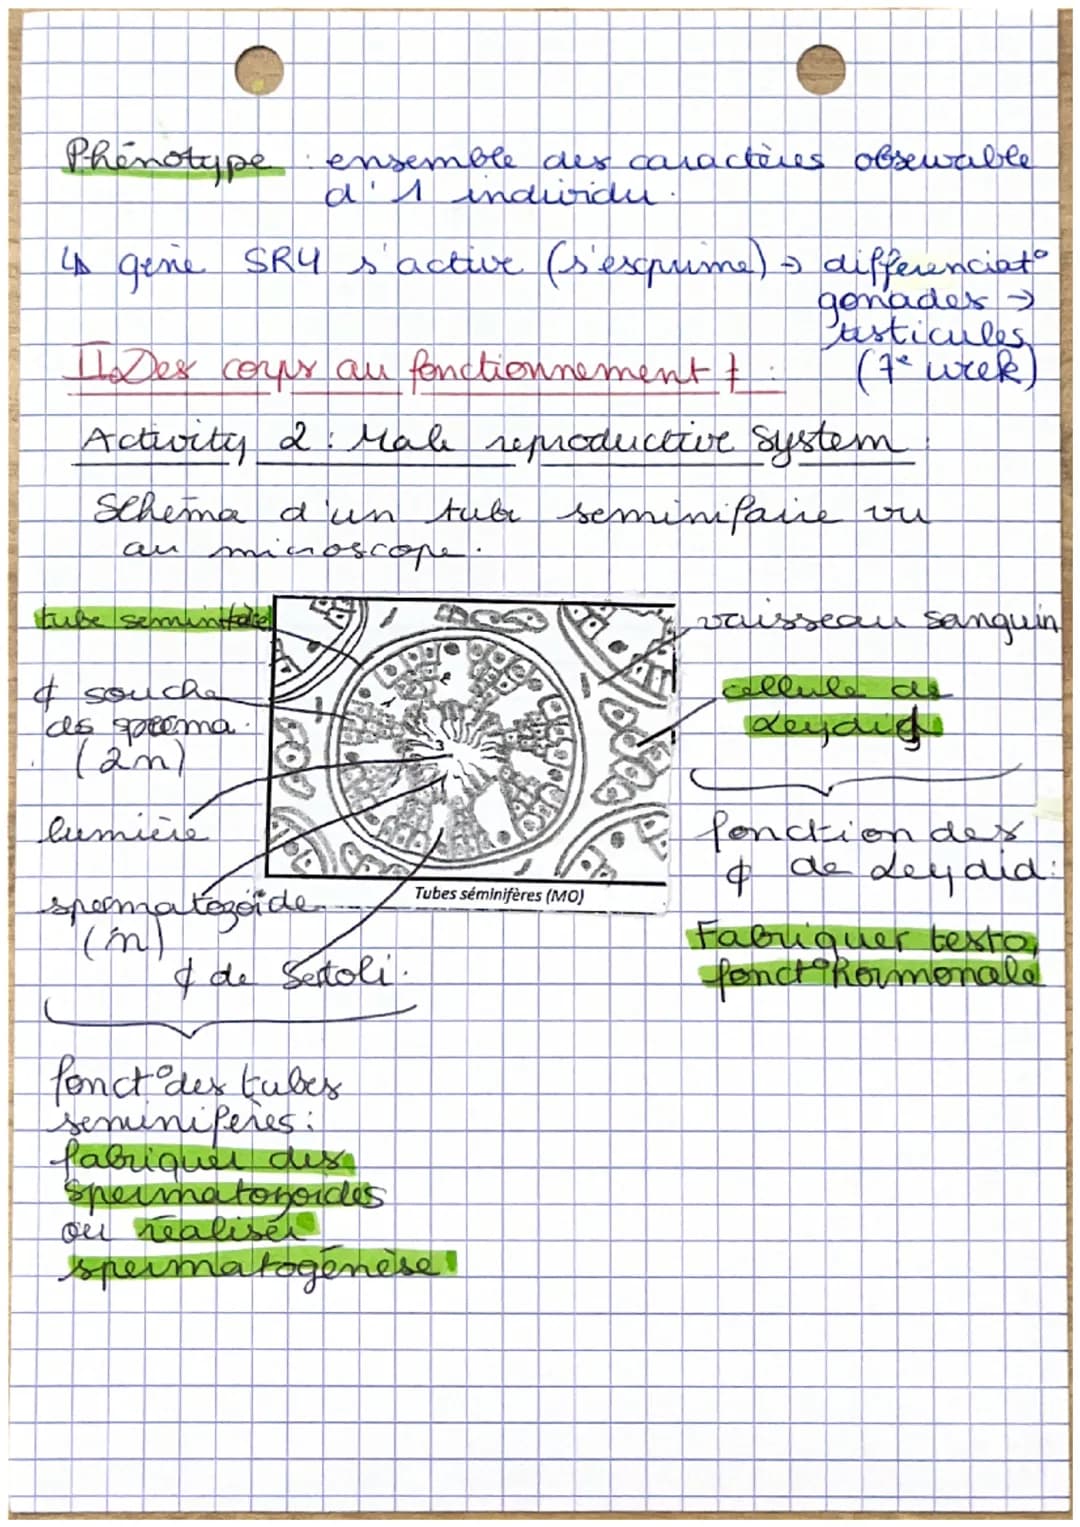 Phénotype : ensemble des caractères observable
d'1 individu.
↳ gène SRY s'active (s'exprime) → différenciat°
gonades →
testicules
(7e week)
II. Des corps au fonctionnement ≠ :
Activity 2 : Male reproductive System :
Schéma d'un tube seminifaire vu
au microscope.
tube seminifaire
¢ souche
des sperma.
(2n)
lumière
spermatozoïde
(n)
¢ de Sertoli.
3
Tubes séminifères (MO)
vaisseau sanguin
cellule de
Leydig
fonction des
¢ de Leydid :
Fabriquer testo,
fonct° hormonale
fonct° des tubes
seminifères :
fabriquer des
spermatozoïdes
ou réaliser
spermatogénèse